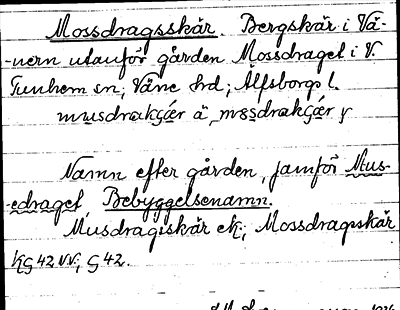 Mossdragsskär. Bergskär i Vä-
-nern utanför gården Mossdraget i V.
Tunhem sn; Väne hd; Älfsborgs l.
musdrakʃǽr ä, mssdrakʃǽr y
Namn efter gården, jämför Mus-
-edraget, Bebyggelsenamn.
Musdragiskär ek; Mossdragskär
KG 42 VV; G 42.